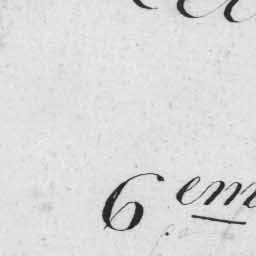 6 em